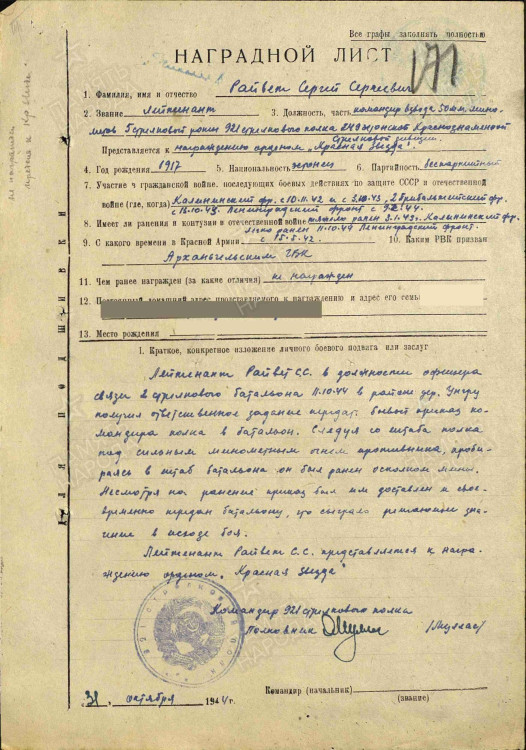 Все графы заполнять полностью
НАГРАДНОЙ ЛИСТ
171
1. Фамилия, имя и отчество Райвет Сергей Сергеевич
2. Звание Лейтенант 3. Должность, часть командир взвода 50 мм. мино-
метов стрелковой роты 921 стрелкового полка 249 Эстонской Краснознаменной
стрелковой дивизии
Представляется к награждению орденом „Красная Звезда".
4. Год рождения 1917 5. Национальность эстонец 6. Партийность беспартийный
7. Участие в гражданской войне, последующих боевых действиях по защите СССР и отечественной
войне (где, когда) Калининский фр. с 10.11.42 и с 3.10.43, 2 Прибалтийский фр.
с 18.10.43. Ленинградский фронт с
8. Имеет ли ранения и контузии в отечественной войне тяжело ранен 3.1.43г. Калининский фр.
легко ранен 11.10.44 Ленинградский фронт.
9. С какого времени в Красной Армии с 15.5.42 10. Каким РВК призван
Архангельским ГВК
11. Чем ранее награжден (за какие отличия) не награжден
12. Постоянный домашний адрес представляемого к награждению и адрес его семьи
13. Место рождения
I. Краткое, конкретное изложение личного боевого подвига или заслуг
Лейтенант Райвет С.С. в должности офицера
связи стрелкового батальона 11.10.44 в районе дер. Унгру
получил ответственное задание передать боевой приказ ко-
мандира полка в батальон. Следуя со штаба полка
под сильным минометным огнем противника, проби-
раясь в штаб батальона он был ранен осколком мины.
Несмотря на ранение приказ был им доставлен и свое-
временно передан батальону, что сыграло решающее зна-
чение в исходе боя.
Лейтенант Райвет С.С. представляется к награ-
ждению орденом „Красная Звезда"
Командир 921 стрелкового полка
Полковник
31 октября 1944г.
Командир (начальник)
(звание)
ДЛЯ ПОДШИВКИ